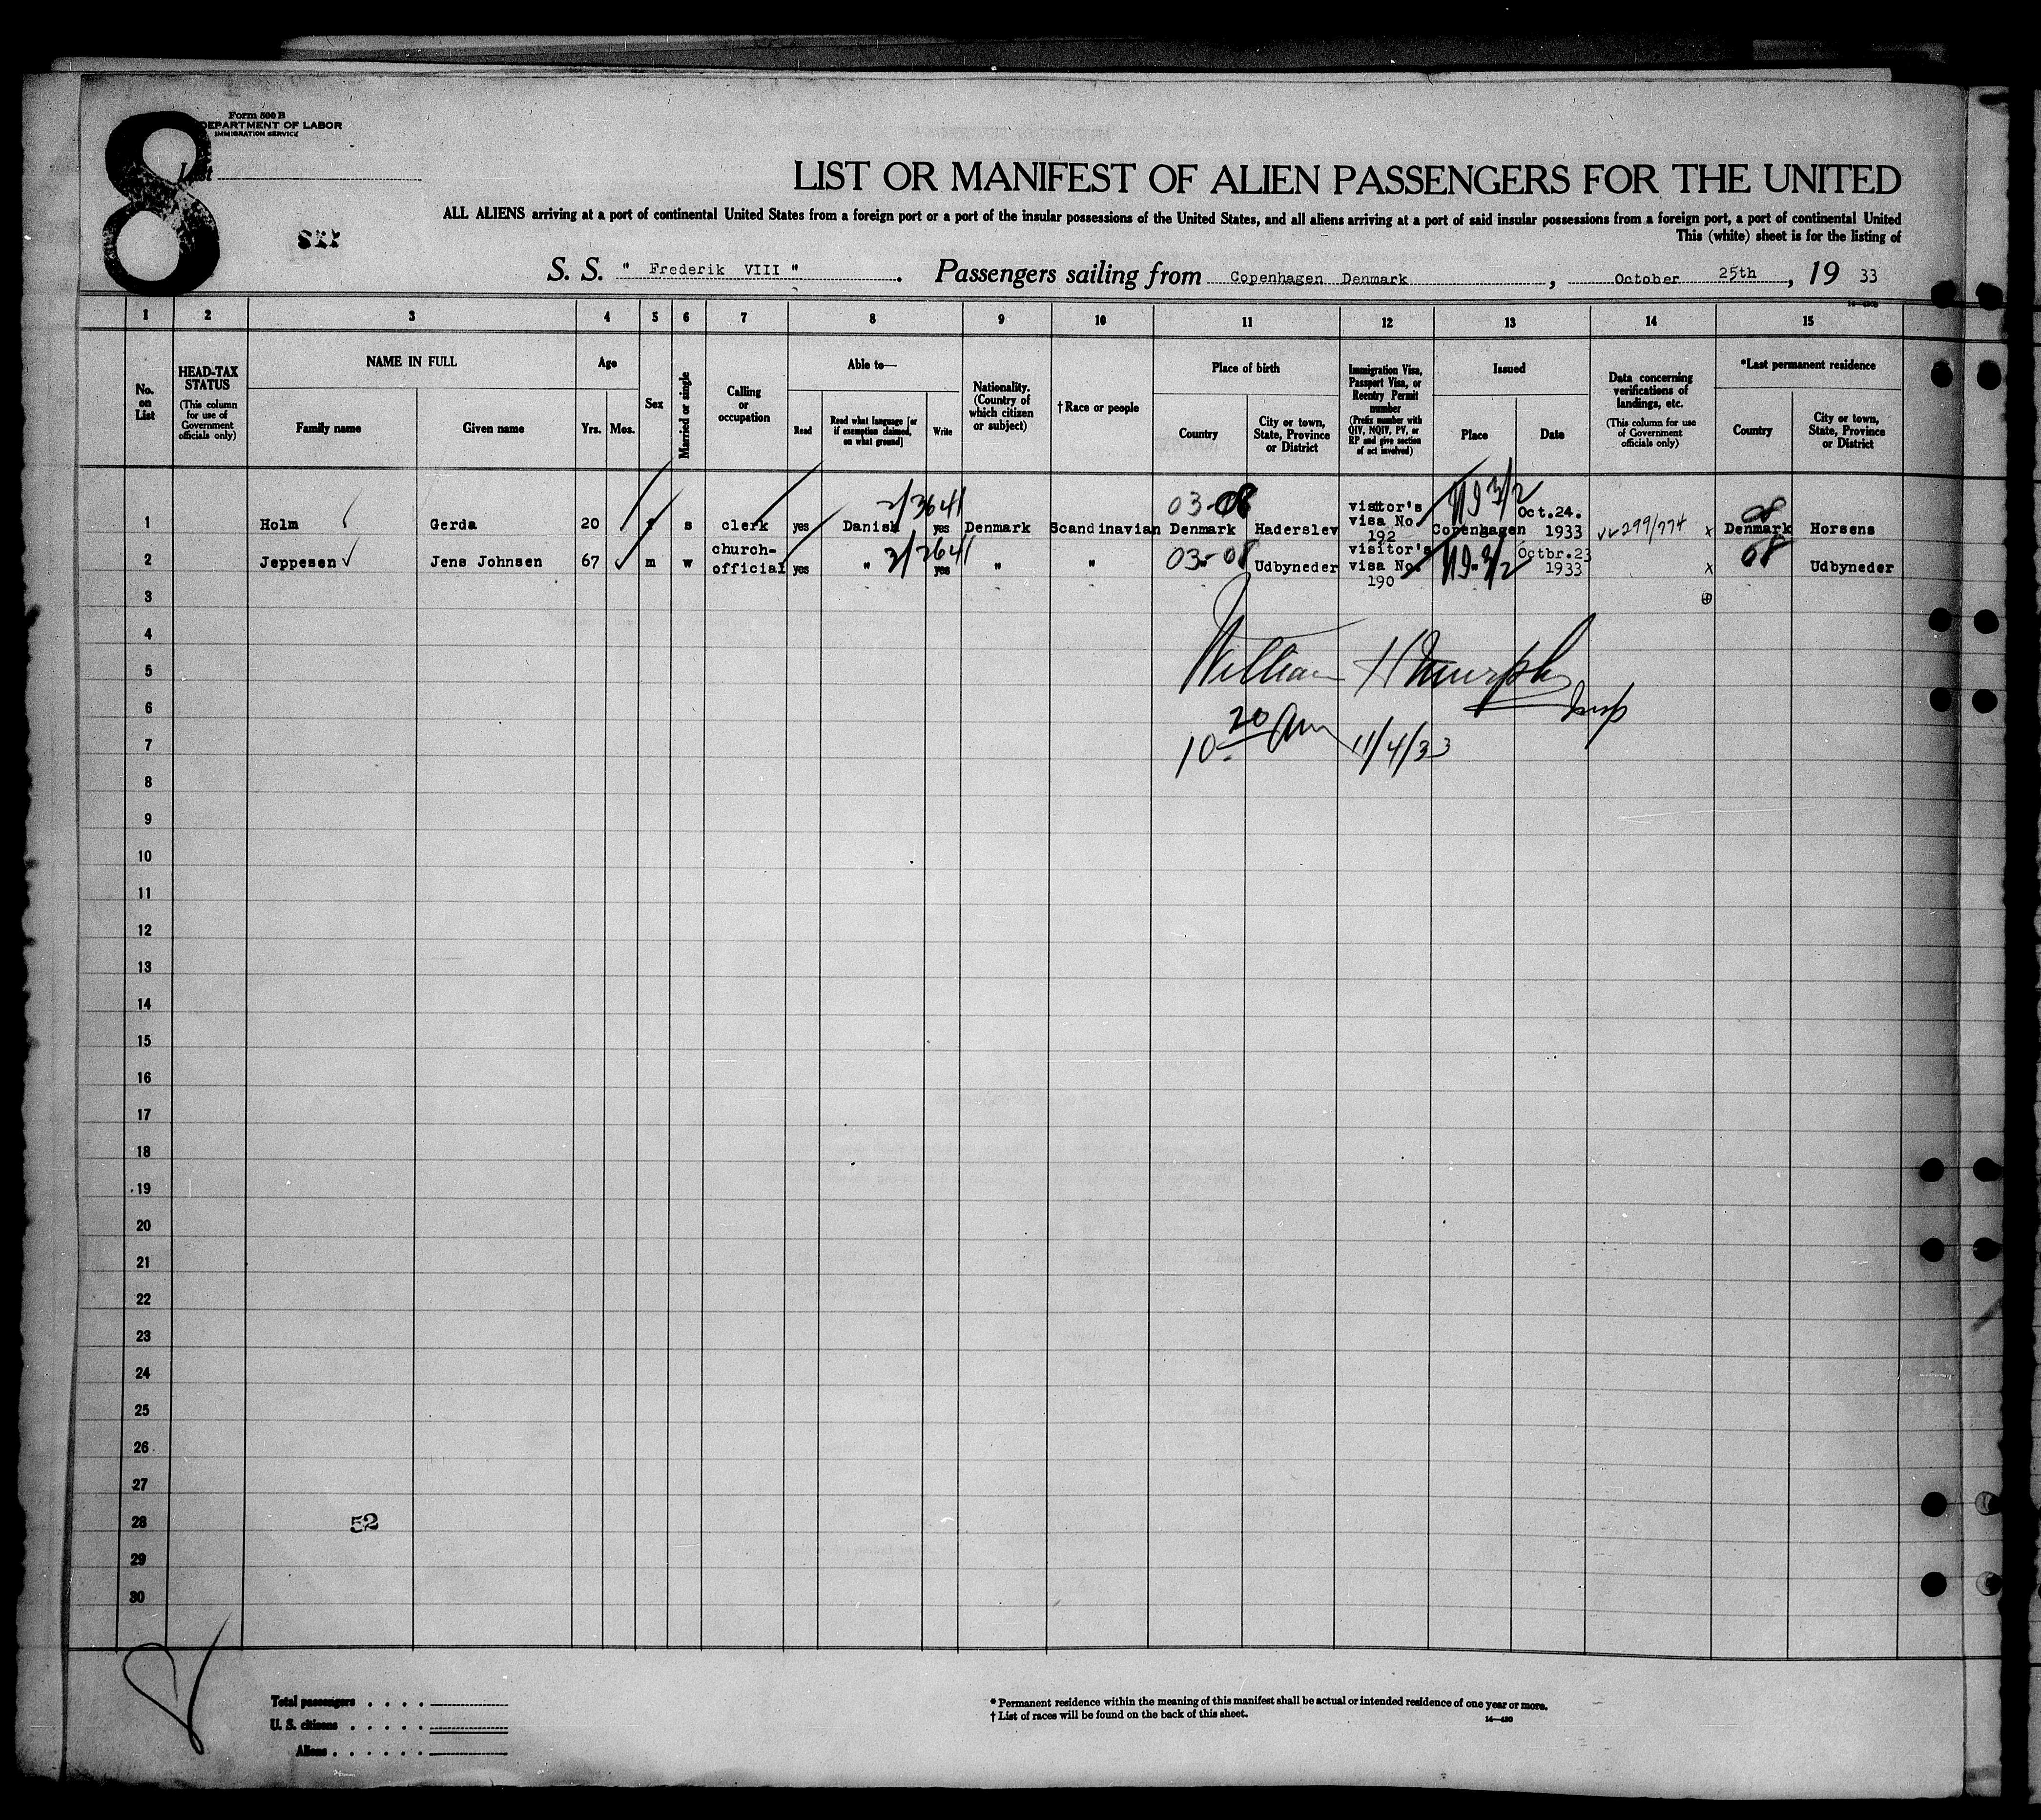 8
Form 500 B
DEPARTMENT OF LABOR
IMMIGRATION SERVICE
List
LIST OR MANIFEST OF ALIEN PASSENGERS FOR THE UNITED
ALL ALIENS arriving at a port of continental United States from a foreign port or a port of the insular possessions of the United States, and all aliens arriving at a port of said insular possessions from a foreign port, a port of continental United
This (white) sheet is for the listing of
S. S. " Frederik VIII ". Passengers sailing from Copenhagen Denmark, October 25th, 19 33
1 2 3 4 5 6 7 8 9 10 11 12 13 14 15
No. on List
HEAD-TAX STATUS (This column for use of Government officials only)
NAME IN FULL
Family name
Given name
Age
Yrs.
Mos.
Sex
Married or single
Calling or occupation
Able to—
Read
Read what language [or if exemption claimed, on what ground]
Write
Nationality. (Country of which citizen or subject)
† Race or people
Place of birth
Country
City or town, State, Province or District
Immigration Visa, Passport Visa, or Reentry Permit number (Prefix number with QIV, NQIV, PV, or RP and give section of act involved)
Issued
Place
Date
Data concerning verifications of landings, etc. (This column for use of Government officials only)
*Last permanent residence
Country
City or town, State, Province or District
2/3641 03-08 08
1 Holm Gerda 20 f s clerk yes Danish yes Denmark Scandinavian Denmark Haderslev visitor's visa No. 192 Copenhagen Oct.24. 1933 299/774 x Denmark Horsens
2/3641 03-08 08
2 Jeppesen Jens Johnsen 67 m w church-official yes " yes " " " Udbyneder visitor's visa No. 190 " Octbr.23 1933 x Udbyneder
3
4
5
William H Murphy
6
Insp
7
10 20 am 11/4/33
8
9
10
11
12
13
14
15
16
17
18
19
20
21
22
23
24
25
26
27
28 52
29
30
Total passengers . . . .
U. S. citizens . . . . .
Aliens . . . . . .
* Permanent residence within the meaning of this manifest shall be actual or intended residence of one year or more.
† List of races will be found on the back of this sheet.
14—430